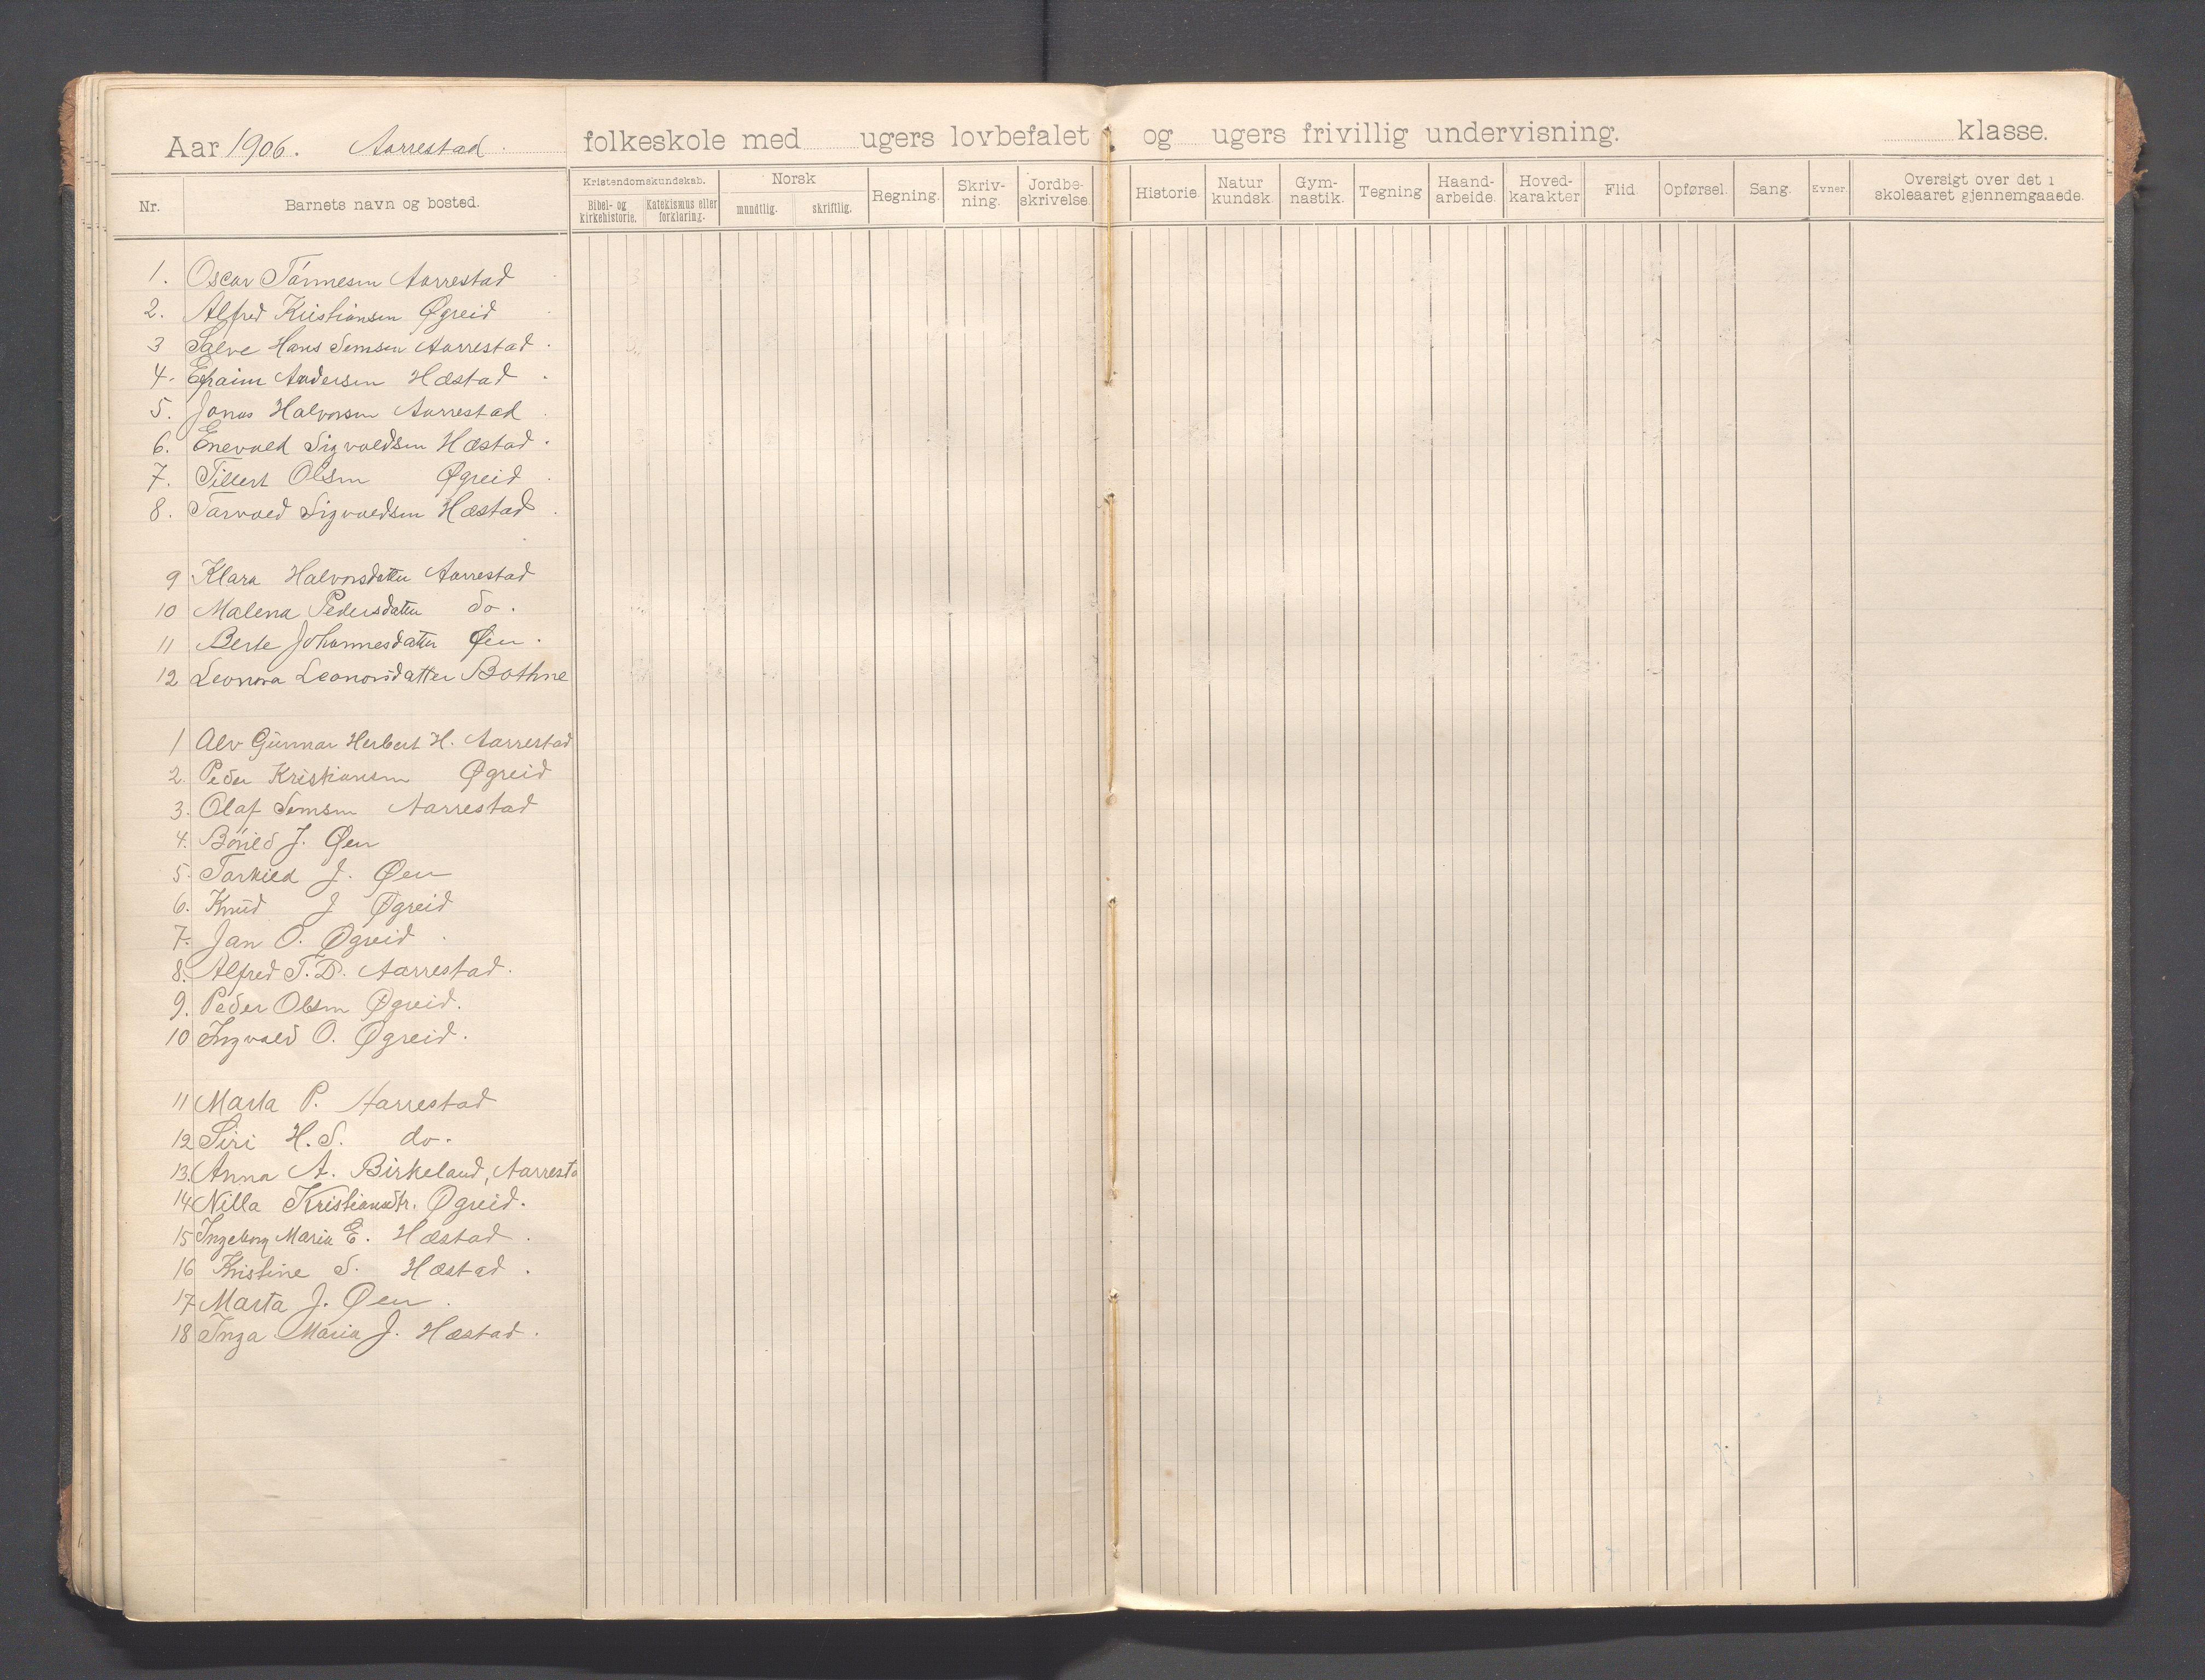 Aar 1906. Aarrestad folkeskole med ugers lovbefalet og ugers frivillig undervisning. klasse.
Nr. Barnets navn og bosted. Kristendomskundskab. Bibel- og kirkehistorie. Katekismus eller forklaring. Norsk mundtlig. skriftlig. Regning. Skriv-ning. Jordbe-skrivelse. Historie Natur kundsk. Gym-nastik. Tegning Haand-arbeide. Hoved-karakter Flid Opførsel. Sang. Evner. Oversigt over det i skoleaaret gjennemgaaede.
1. Oscar Tønnesen Aarrestad
2. Alfred Kristiansen Øgreid
3 Salve Hans Semsen Aarrestad.
4. Efraim Andersen Hæstad.
5. Jonas Halvorsen Aarrestad
6. Enevald Sigvaldsen Hæstad.
7. Tillert Olsen Øgreid
8. Tarvald Sigvaldsen Hæstad.
9 Klara Halvorsdatter Aarrestad
10 Malena Pedersdatter do.
11 Berte Johannesdatter Øen.
12 Leonora Leonorsdatter Bothne
1 Alv Gunnar Herbert H. Aarrestad
2. Peder Kristiansen Øgreid
3. Olaf Semsen Aarrestad
4. J. Øen
5. Tarkild J. Øen
6. Knud J Øgreid
7. Jan O. Øgreid
8. Alfred T.B. Aarrestad.
9. Peder Olsen Øgreid.
10 Ingvald O. Øgreid.
11 Marta P. Aarrestad
12 Siri H.S. do.
13. Anna A. Birkeland, Aarresta
14 Nilla Kristiansdtr. Øgreid.
15 Ingeborg Maria E. Hæstad.
16 Kristine S. Hæstad.
17 Marta J. Øen.
18 Inga Maria J. Hæstad.